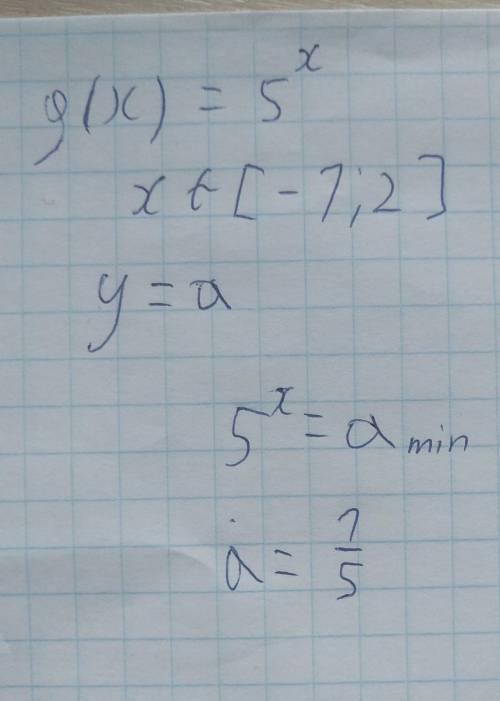 g(x) = 5^x
x ∈ [-1; 2]
y = a
5^x = a min
a = 1/5